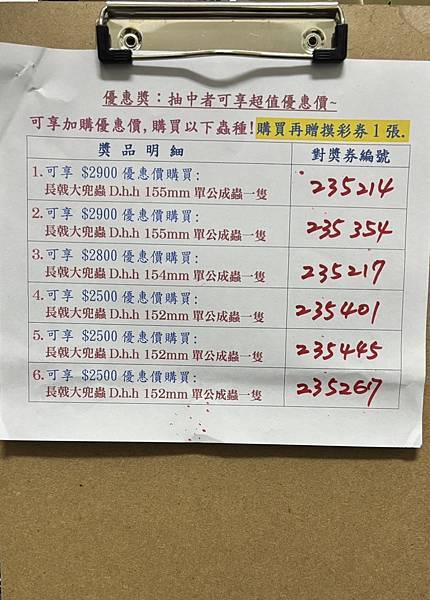 優惠獎：抽中者可享超值優惠價~
可享加購優惠價,購買以下蟲種!購買再贈摸彩券1張.
獎品明細 對獎券編號
1.可享 $2900 優惠價購買: 235214
長戟大兜蟲 D.h.h 155mm 單公成蟲一隻
2.可享 $2900 優惠價購買: 235354
長戟大兜蟲 D.h.h 155mm 單公成蟲一隻
3.可享 $2800 優惠價購買: 235217
長戟大兜蟲 D.h.h 154mm 單公成蟲一隻
4.可享 $2500 優惠價購買: 235401
長戟大兜蟲 D.h.h 152mm 單公成蟲一隻
5.可享 $2500 優惠價購買: 235445
長戟大兜蟲 D.h.h 152mm 單公成蟲一隻
6.可享 $2500 優惠價購買: 235267
長戟大兜蟲 D.h.h 152mm 單公成蟲一隻